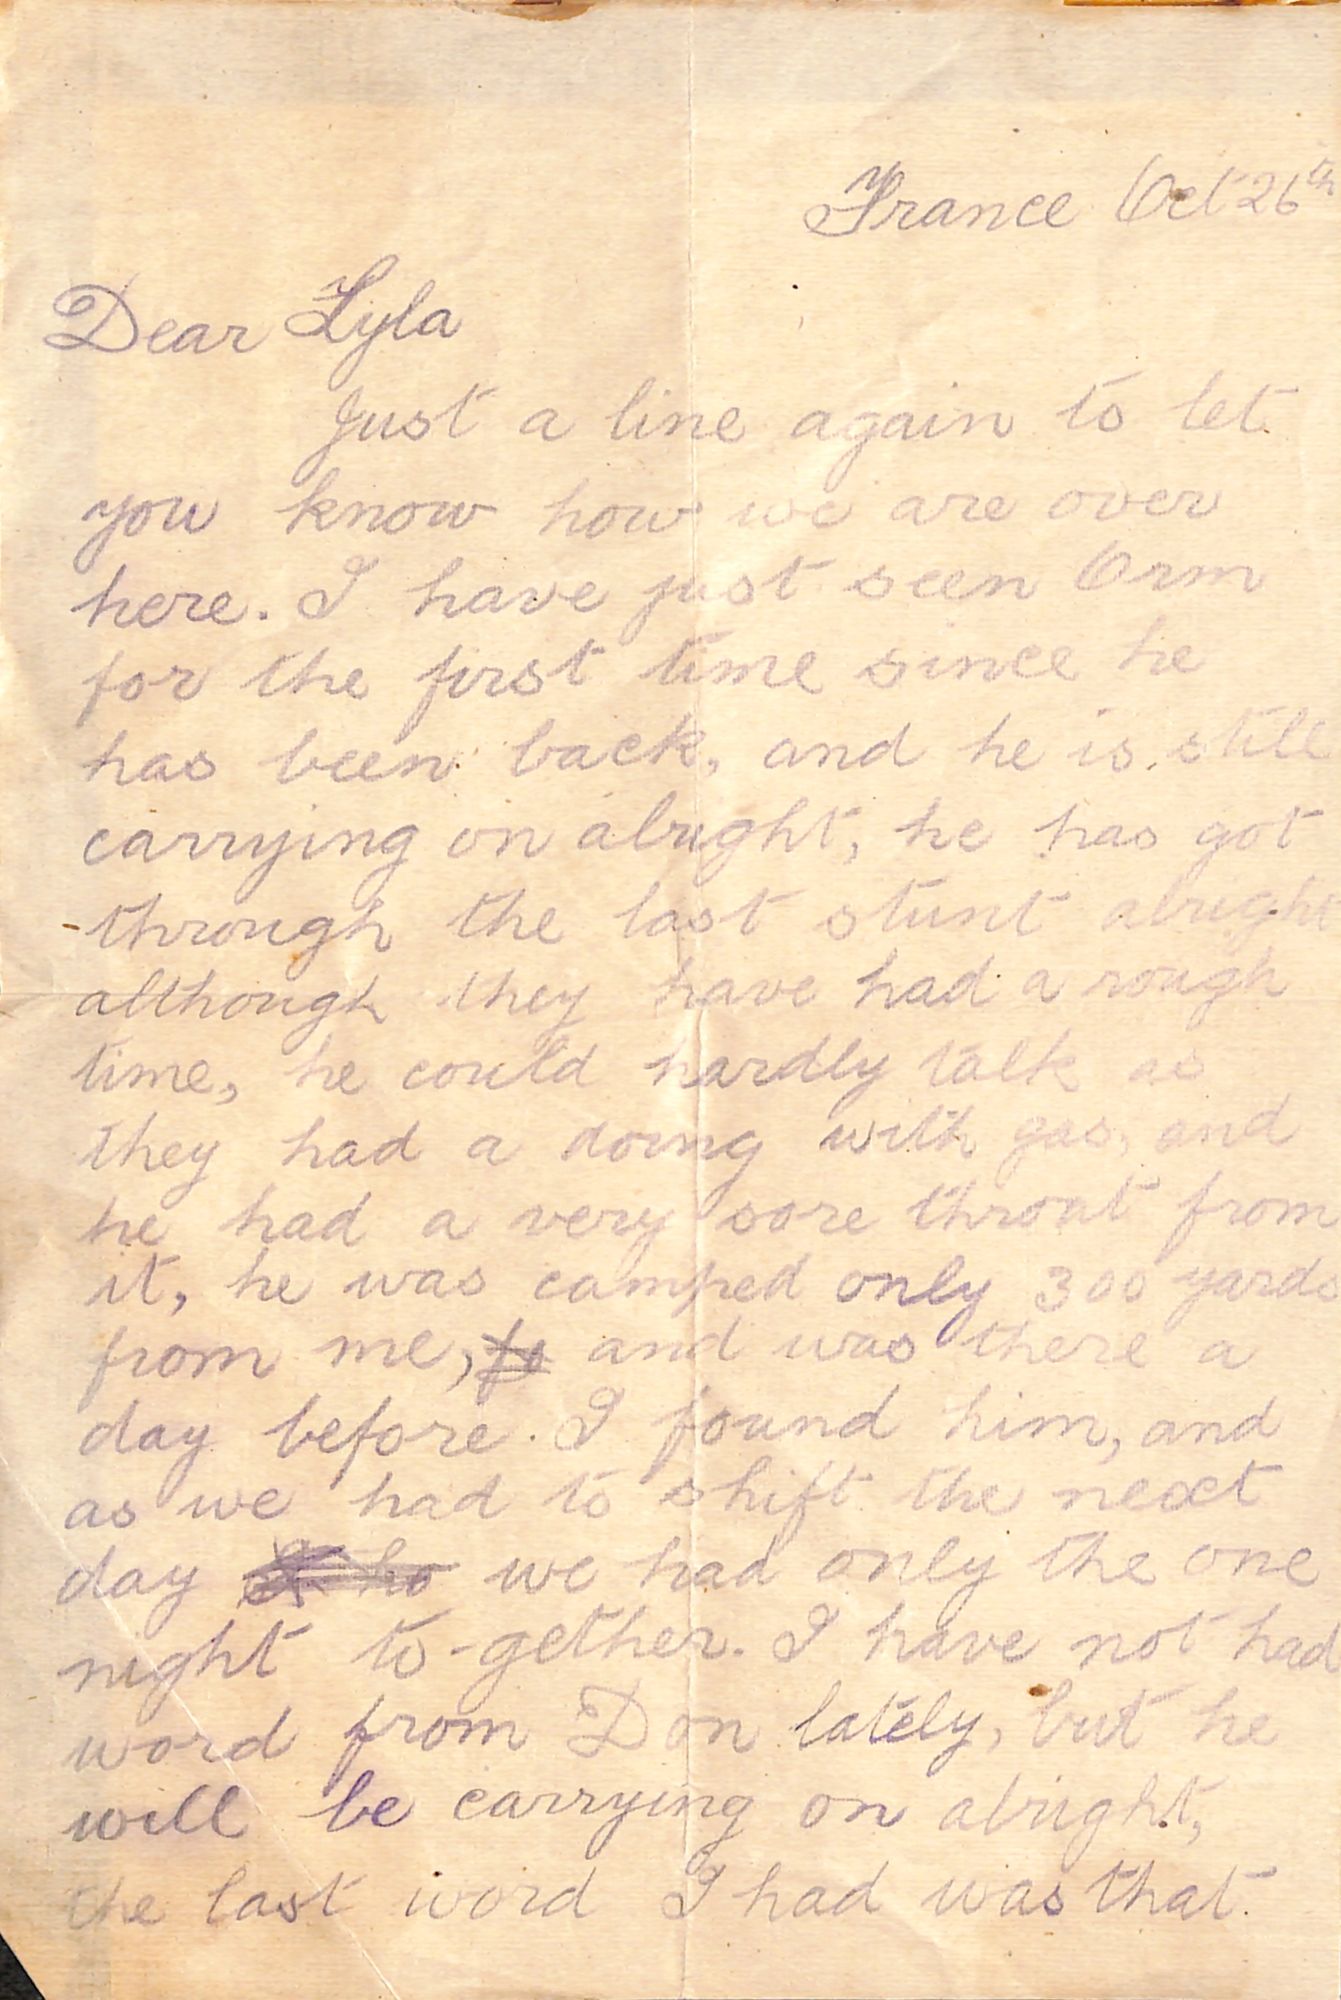 France Oct 26th
Dear Lyla
Just a line again to let
you know how we are over
here. I have just seen Orm
for the first time since he
has been back, and he is still
carrying on alright, he has got
through the last stunt alright
although they have had a rough
time, he could hardly talk as
they had a doing with gas, and
he had a very sore throat from
it, he was camped only 300 yards
from me, and was there a
day before. I found him, and
as we had to shift the next
day we had only the one
night to-gether. I have not had
word from Don lately, but he
will be carrying on alright,
the last word I had was that.